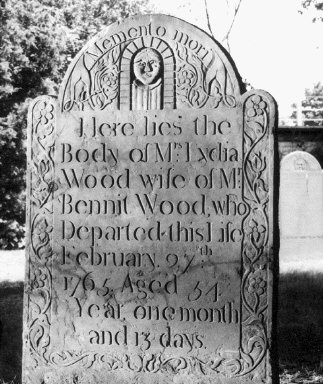 Memento mori
Here lies the
Body of Mrs. Lydia
Wood wife of Mr.
Bennit Wood, who
Departed this Life
February 27th
1765, Aged 54
Year, one month
and 13 days.